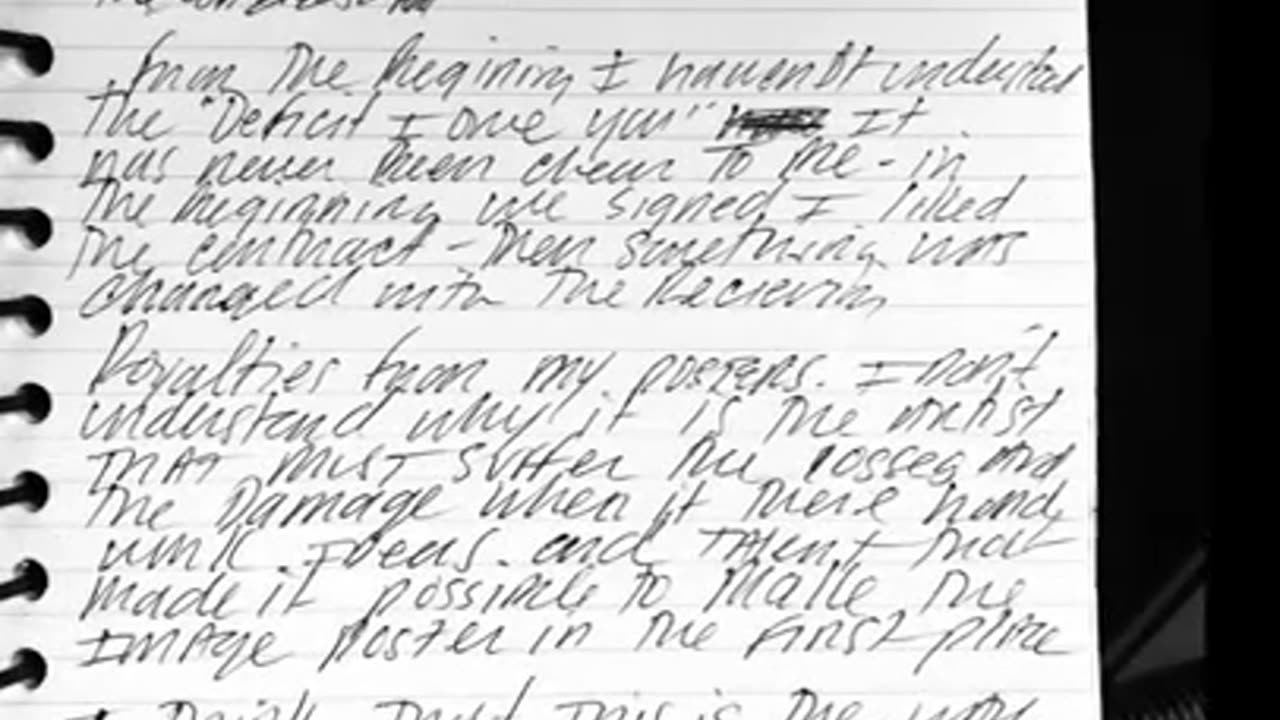 from the begining I havenBt understand
the "Deficit I owe you" It
has never been clear to me - in
the beginning we signed I liked
the contract - then something was
changed with the Recieving
Royalties from my posters. I don't
understand why it is the artist
THAT MUST SUFFER the losses and
the Damage when it there hand
work. Ideas. and TAlent that
made it possible to make the
IMAge poster in the First place
I think that this is the